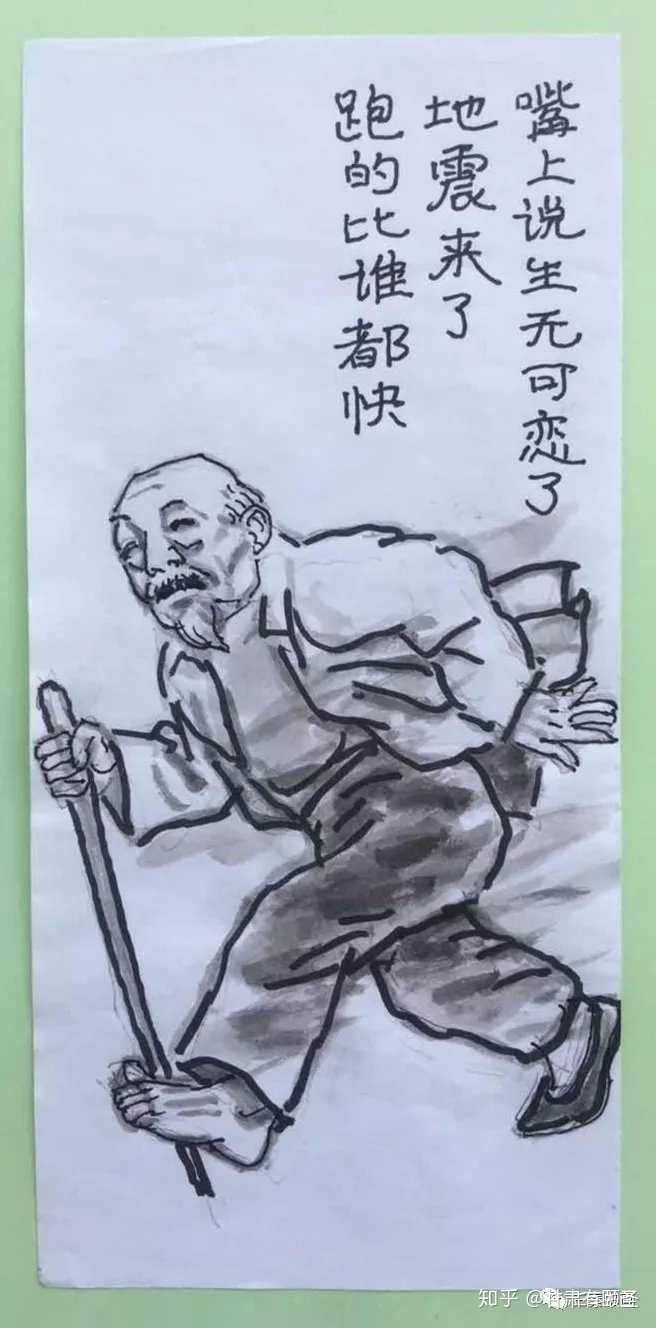 嘴上说生无可恋了
地震来了
跑的比谁都快
知乎 @